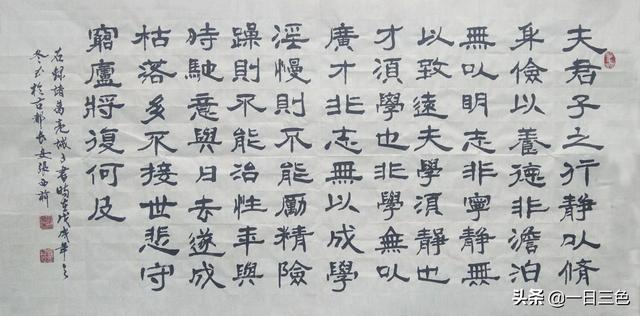 夫君子之行静以脩
身儉以養德非澹泊
無以明志非寧静無
以致遠夫學須静也
才須學也非學無以
廣才非志無以成學
淫慢則不能勵精險
躁則不能治性年與
時馳意與日去遂成
枯落多不接世悲守
窮廬將復何及
右録諸葛亮誡子書時在戊戌年之
冬於都長安張西
头条 @一日三色